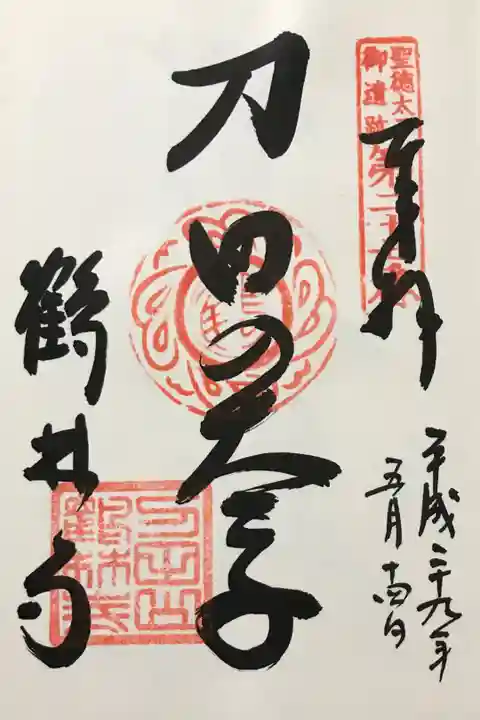 聖徳太
御遺跡第二十
奉拝
平成二十九年
五月十四日
刀田の太子
鶴林寺
刀田山
鶴林寺